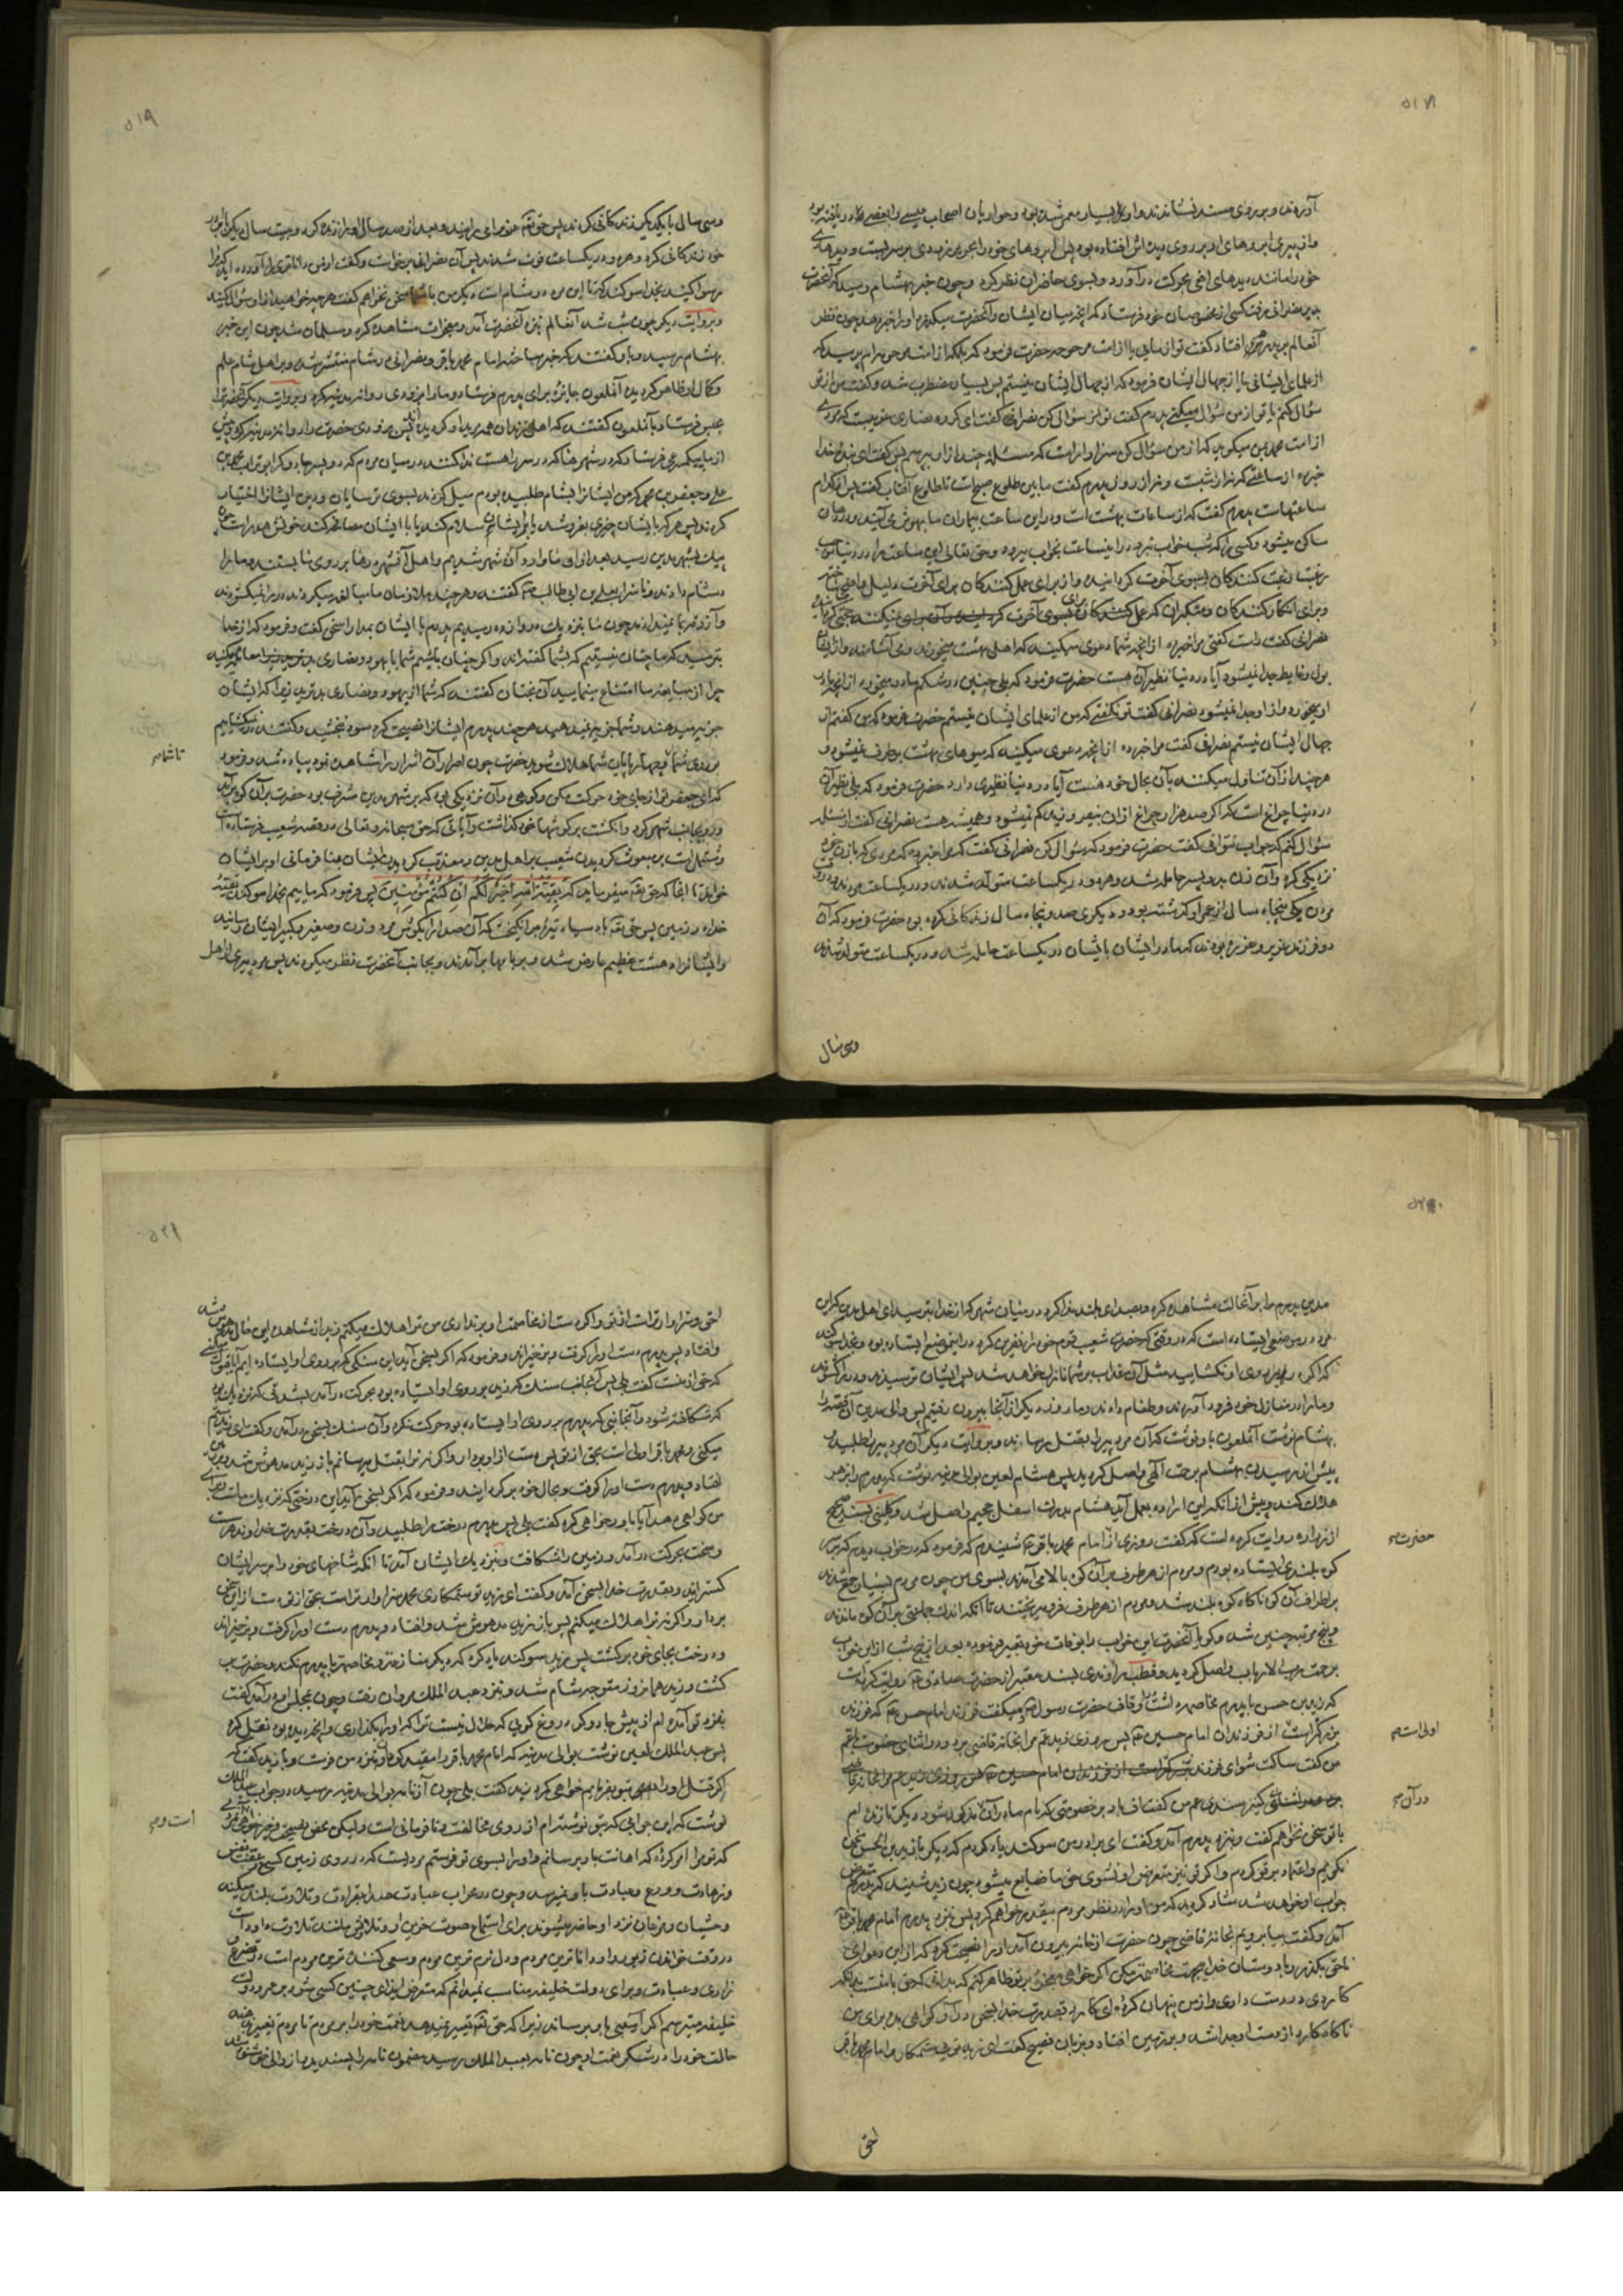 ۵۱۸
آوردند و بر روی مسند نشاندند و او بسیار معمر شده بود و حواریان اصحاب عیسی را بعضی دریافته بود
و از پیری ابروهای او بر روی دیده‌اش افتاده بود پس ابروهای خود را بحریر زردی بر سر بست و دیدهای
خود را مانند دیدهای افعی بحرکت درآورد و بسوی حاضران نظر کرد و چون خبر بهشام رسید که آنحضرت
بدیر نصرانی رفت کسی از مخصوصان خود فرستاد که آنچه میان ایشان و آنحضرت میگذرد او را خبر دهد چون نظر
آنعالم بر پدرم افتاد گفت تو از مایی یا از امت مرحومه حضرت فرمود که بلکه از امت مرحومه‌ام پرسید که
از علمای ایشانی یا از جهال ایشان فرمود که از جهال ایشان نیستم پس بسیار مضطرب شد و گفت من از تو
سؤال کنم یا تو از من سؤال میکنی پدرم گفت تو از من سؤال کن نصرانی گفت ای گروه نصاری غریبست که مردی
از امت محمد بمن میگوید که از من سؤال کن سزاوار است که مسئله چند از او بپرسم پس گفت ای بنده خدا
خبر ده از ساعتی که نه از شبست و نه از روز پدرم گفت مابین طلوع صبح است تا طلوع آفتاب گفت پس از کدام
ساعتهاست پدرم گفت که از ساعات بهشت است و در این ساعت بیماران ما بهوش می‌آیند و دردها
ساکن میشود و کسی را که شب خواب نبرد در اینساعت بخواب میرود و حق تعالی این ساعت را در دنیا موجب
رغبت رغبت کنندگان بسوی آخرت گردانیده و از برای عمل کنندگان برای آخرت دلیل واضحی ساخته
و برای انکار کنندگان و متکبران که عمل برای آخرت نمیکنند حجتی گردانیده
نصرانی گفت راست گفتی مرا خبر ده از آنچه شما دعوی میکنید که اهل بهشت میخورند و می‌آشامند و از ایشان
بول و غایط جدا نمیشود آیا در دنیا نظیر آن هست حضرت فرمود که بلی جنین در شکم مادر میخورد از آنچه مادر
او میخورد و از او جدا نمیشود نصرانی گفت تو نگفتی که من از علمای ایشان نیستم حضرت فرمود که من گفتم از
جهال ایشان نیستم نصرانی گفت مرا خبر ده از آنچه دعوی میکنید که میوهای بهشت برطرف نمیشود و
هرچند از آن تناول میکنند باز آن بحال خود هست آیا در دنیا نظیری دارد حضرت فرمود که بلی نظیر آن
در دنیا چراغ است که اگر صد هزار چراغ از آن بیفروزند کم نمیشود و همیشه هست نصرانی گفت از مسئله
سؤال کنم که جواب نتوانی گفت حضرت فرمود که سؤال کن نصرانی گفت که مرا خبر ده که مردی که با زن خود
نزدیکی کرد و آن زن بدو پسر حامله شد و هر دو در یکساعت متولد شدند و در یکساعت مردند و در وقت
مردن یکی پنجاه سال از عمر او گذشته بود و دیگری صد و پنجاه سال زندگانی کرده بود حضرت فرمود که آن
دو فرزند عزیر و عزره بودند که مادر ایشان بایشان در یکساعت حامله شد و در یکساعت متولد شدند
وسی سال
۵۱۹
وسی سال با یکدیگر زندگانی کردند پس حق تعالی عزیر را میرانید و بعد از صد سال او را زنده کرد و بیست سال دیگر با برادر
خود زندگانی کرد و هر دو در یکساعت فوت شدند پس آن نصرانی برخاست و گفت از من داناتری را آورده‌اید که مرا
رسوا کنید بخدا سوگند که تا این مرد در شام است دیگر من با شما سخن نخواهم گفت هرچه خواهید از او سؤال کنید
و بروایت دیگر چون شب شد آنعالم نزد آنحضرت آمد و معجزات مشاهده کرد و مسلمان شد چون این خبر
بهشام رسید و باو گفتند که خبر مباحثه امام محمد باقر و نصرانی در شام منتشر شد و بر اهل شام علم
و کمال او ظاهر گردیده آنملعون جایزه برای پدرم فرستاد و ما را بزودی روانه مدینه کرد و بروایت دیگر آنحضرت را
بحبس فرستاد بآنملعون گفتند که اهل زندان همه مرید او گردیده‌اند پس بزودی حضرت را روانه مدینه کرد و پیش
از ما پیکی سریع فرستاد که در شهرها که در سر راهست ندا کنند در میان مردم که دو پسر جادوگر ابوتراب محمد بن
علی و جعفر بن محمد که من ایشانرا بشام طلبیده بودم میل کردند بسوی ترسایان و دین ایشانرا اختیار
کردند پس هر که بایشان چیزی بفروشد یا بر ایشان سلام کند یا با ایشان مصافحه کند خونش هدر است چون
پیک بشهر مدین رسید بعد از آن ما وارد آن شهر شدیم و اهل آنشهر درها بر روی ما بستند و ما را
دشنام دادند و ناسزا بعلی بن ابی طالب گفتند و هرچند ملازمان ما مبالغه میکردند در را نمیگشودند
و آزوقه بما نمیدادند چون ما بنزدیک دروازه رسیدیم پدرم با ایشان بمدارا سخن گفت و فرمود که از خدا
بترسید که ما چنان نیستیم که بشما گفته‌اند و اگر چنان باشیم شما با یهود و نصاری معامله میکنید
چرا از مبایعه ما امتناع مینمایید آن بدبختان گفتند که شما از یهود و نصاری بدترید زیرا که ایشان
جزیه میدهند و شما جزیه نمیدهید هرچند پدرم ایشانرا نصیحت کرد سود نبخشید و گفتند در نمیگشاییم
بر روی شما و چهارپایان شما هلاک شوید حضرت چون اصرار آن اشرار را مشاهده نمود پیاده شد و فرمود
تا شما صح
که ای جعفر تو از جای خود حرکت مکن و کوهی در آن نزدیکی بود که بر شهر مدین مشرف بود حضرت بر آن کوه برآمد
و رو بجانب شهر کرد و انگشت بر گوشها خود گذاشت و آیاتی که حق سبحانه و تعالی در قصه شعیب فرستاده است
و مشتمل است بر مبعوث گردیدن شعیب بر اهل مدین و معذب گردیدن ایشان بنا فرمانی او بر ایشان
خواند تا آنجا که حق تعالی میفرماید که بَقِیَّةُ اللهِ خَیْرٌ لَکُمْ اِنْ کُنْتُمْ مُؤْمِنِینَ پس فرمود که ماییم بخدا سوگند بقیه
خدا در زمین پس حق تعالی باد سیاه تیره برانگیخت که آن صدا را بگوش مرد و زن و صغیر و کبیر ایشان رسانید
و ایشانرا دهشت عظیم عارض شد و بر بامها برآمدند و بجانب آنحضرت نظر میکردند پس مرد پیری از اهل
۵۲۰
مدین پدرم را بر آنحالت مشاهده کرد و بصدای بلند ندا کرد در میان شهر که از خدا بترسید ای اهل مدین که این
مرد در موضعی ایستاده است که در وقتی که حضرت شعیب قوم خود را نفرین کرد در این موضع ایستاده بود و بخدا سوگند
که اگر در بروی او نگشایید مثل آن عذاب بر شما نازل خواهد شد پس ایشان ترسیدند و در را گشودند
و ما را در منازل خود فرود آوردند و طعام دادند و ما روز دیگر از آنجا بیرون رفتیم پس والی مدین آن قصه را
بهشام نوشت آنملعون باو نوشت که آن مرد پیر را بقتل رساند و بروایت دیگر آن مرد پیر را طلبید و
پیش از رسیدن بهشام برحمت الهی واصل گردید پس هشام لعین بوالی مدینه نوشت که پدرم را بزهر
هلاک کند و پیش از آنکه این اراده بعمل آید هشام بدرک اسفل جحیم واصل شد و کلینی بسند صحیح
از زراره روایت کرده است که گفت روزی از امام محمد باقر شنیدم که فرمود که در خواب دیدم که بر سر
حضرت صح
کوه بلندی ایستاده بودم و مردم از هر طرف بر آن کوه بالا می‌آمدند بسوی من چون مردم بسیار جمع شدند
بر اطراف آن کوه ناگاه کوه بلند شد و مردم از هر طرف فرو میریختند تا آنکه اندک جماعتی بر آن کوه ماندند
و پنج مرتبه چنین شد و گویا آنحضرت این خواب را بوفات خود تعبیر فرموده بود بعد از پنج شب از این خواب
برحمت رب الارباب واصل گردید و قطب راوندی بسند معتبر از حضرت صادق روایت کرده است
که زید بن حسن با پدرم مخاصمه داشت در اوقاف حضرت رسول و میگفت فرزند امام حسن که فرزند
بزرگتر است از فرزندان امام حسین پس روزی زید عم مرا بخانه قاضی برد و در اثنای خصومت با عم
اولی است صح
من گفت ساکت شو ای فرزند
کنیز سندی عم من گفت اف باد بر خصومتی که نام مادران مذکور شود دیگر تا زنده‌ام
در آن صح
با تو سخن نخواهم گفت و بنزد پدرم آمد و گفت ای برادر من سوگند یاد کردم که دیگر با زید بن الحسن سخن
نگویم و اعتماد بر تو کردم و اگر تو نیز متعرض او نشوی حق ما ضایع میشود چون زید شنید که پدرم متعرض
جواب او خواهد شد شاد گردید که من او را در نظر مردم بیقدر خواهم کرد پس نزد پدرم امام محمد باقر
آمد و گفت بیا برویم بخانه قاضی چون حضرت از خانه بیرون آمد او را نصیحت کرد که از این دعوای
ناحق بگذر و با دوستان خدا بیجهت مخاصمه مکن اگر خواهی معجزه بر تو ظاهر کنم که بدانی که حق با منست بدانکه
کاردی در دست داری و از من پنهان کرده‌ای کارد بقدرت خدا بسخن درآید و گواهی بدهد برای من
ناگاه کارد از دست او جدا شد و بر زمین افتاد و بزبان فصیح گفت ای زید تویی ستمکار و امام محمد باقر
احق
۵۲۱
احق و سزاوارتر است از تو و اگر دست از مخاصمه او برنداری من ترا هلاک میکنم زید از مشاهده این حال مدهوش شد
و افتاد پس پدرم دست او را گرفت و برخیزاند و فرمود که اگر بسخن آید این سنگی که بر روی او ایستاده‌ایم آیا قبول میکنی
که حق از منست گفت بلی پس آنجانب سنگ که زید بر روی او ایستاده بود بحرکت درآمد بشدتی که نزدیک بود
که شکافته شود و آنجانبی که پدرم بر روی او ایستاده بود حرکت نکرد و آن سنگ بسخن درآمد و گفت ای زید ستم
میکنی و محمد باقر اولی است بحق از تو پس دست از او بردار و اگر نه ترا بقتل میرسانم باز زید مدهوش شد و بر زمین
افتاد و پدرم دست او را گرفت و بحال خود برگردانید و فرمود که اگر بسخن آید این درختی که نزدیک ماست برای
من گواهی دهد آیا باور خواهی کرد گفت بلی پس پدرم درخت را طلبید و آن درخت بقدرت خداوند عزت
و سخت بحرکت درآمد و زمین را شکافت و نزدیک ایشان آمد تا آنکه شاخهای خود را بر سر ایشان
گسترانید و بقدرت خدا بسخن آمد و گفت ای زید تو ستمکاری و محمد سزاوارتر است بحق از تو دست از این سخن
بردار و اگر نه ترا هلاک میکنم پس باز زید مدهوش شد و افتاد و پدرم دست او را گرفت و برخیزاند
و درخت بجای خود برگشت پس زید سوگند یاد کرد که دیگر منازعه و مخاصمه با پدرم نکند و حضرت
گشت و زید همانروز متوجه شام شد و بنزد عبد الملک مروان رفت و چون بمجلس او درآمد گفت
بنزد تو آمده‌ام از پیش جادوگر دروغ گویی که حلال نیست ترا که او را بگذاری و آنچه دیده بود نقل کرد
پس عبد الملک لعین نوشت بوالی مدینه که امام محمد باقر را مقید گردان و بنزد من فرست و با زید گفت که
اگر قتل او را بتو بفرمایم خواهی کرد زید گفت بلی چون آن نامه بوالی مدینه رسید در جواب عبد الملک
نوشت که این جوابی که بتو نوشته‌ام از روی مخالفت و نافرمانی است ولیکن محض نصیحت و خیرخواهی
است و صح
که تو مرا امر کرده که اهانت باو برسانم و او را بسوی تو فرستم مردیست که در روی زمین کسی
و زهادت و ورع و عبادت باو نمیرسد و چون در محراب عبادت صدا بقرائت و تلاوت بلند میکند
وحشیان و مرغان نزد او حاضر میشوند برای استماع صوت حزین او و تلاوتش مانند تلاوت داود است
در وقت خواندن زبور و او داناترین مردم و دل نرم ترین مردم و سعی کننده ترین مردم است در تضرع و
زاری و عبادت و برای دولت خلیفه مناسب نمیدانم که متعرض ایذای چنین کسی شود
خلیفه میترسم اگر آسیبی باو برساند زیرا که حق تعالی تغییر نمیدهد نعمت خود را بر مردم تا مردم تغییر دهند
حالت خود را در شکر نعمت او چون نامه بعبد الملک رسید مضمون نامه را پسندید و از والی خشنود شد